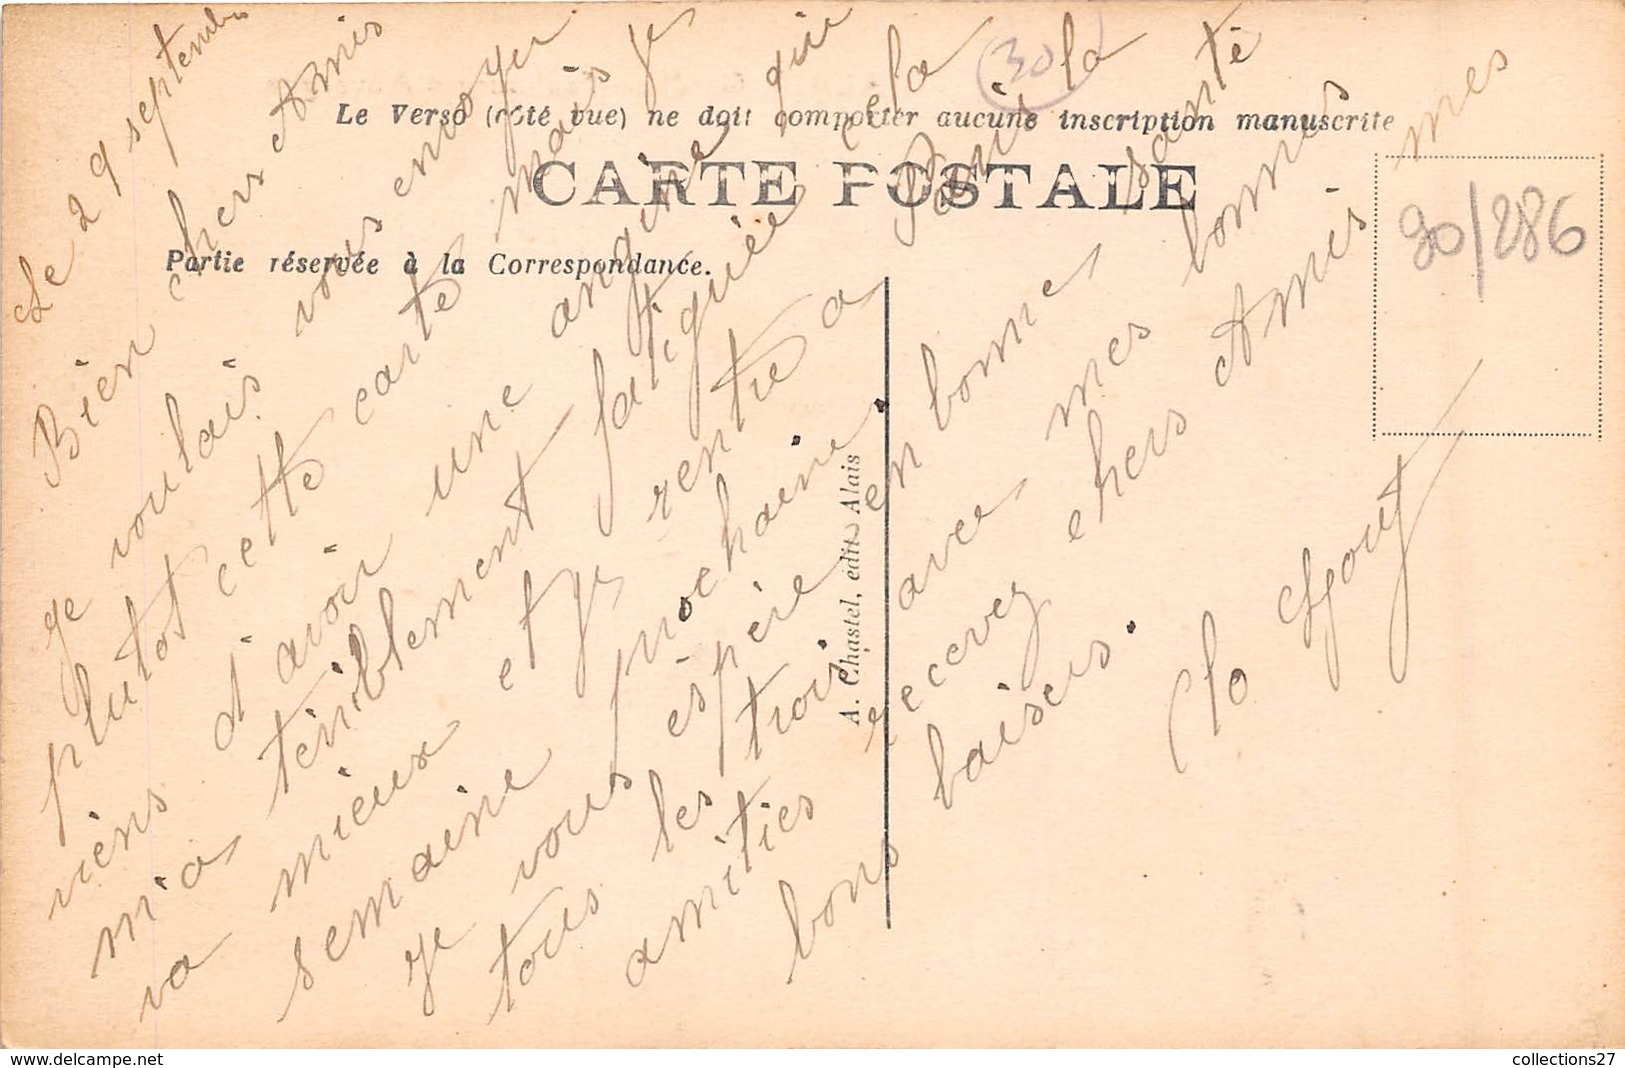 Le Verso (côté vue) ne doit comporter aucune inscription manuscrite
CARTE POSTALE
Partie réservée à la Correspondance.
A. Chastel, édit. Alais
30
90/286
Le 29 septembre
Bien chers Amis
je voulais vous envoyer
plutot cette carte mais je
viens d'avoir une angine qui
m'a terriblement fatiguée cela
va mieux et je rentre a Paris la
semaine prochaine.
je vous espère en bonne santé
tous les trois avec mes bonnes
amitiés recevez chers Amis mes
bons baisers.
collections27